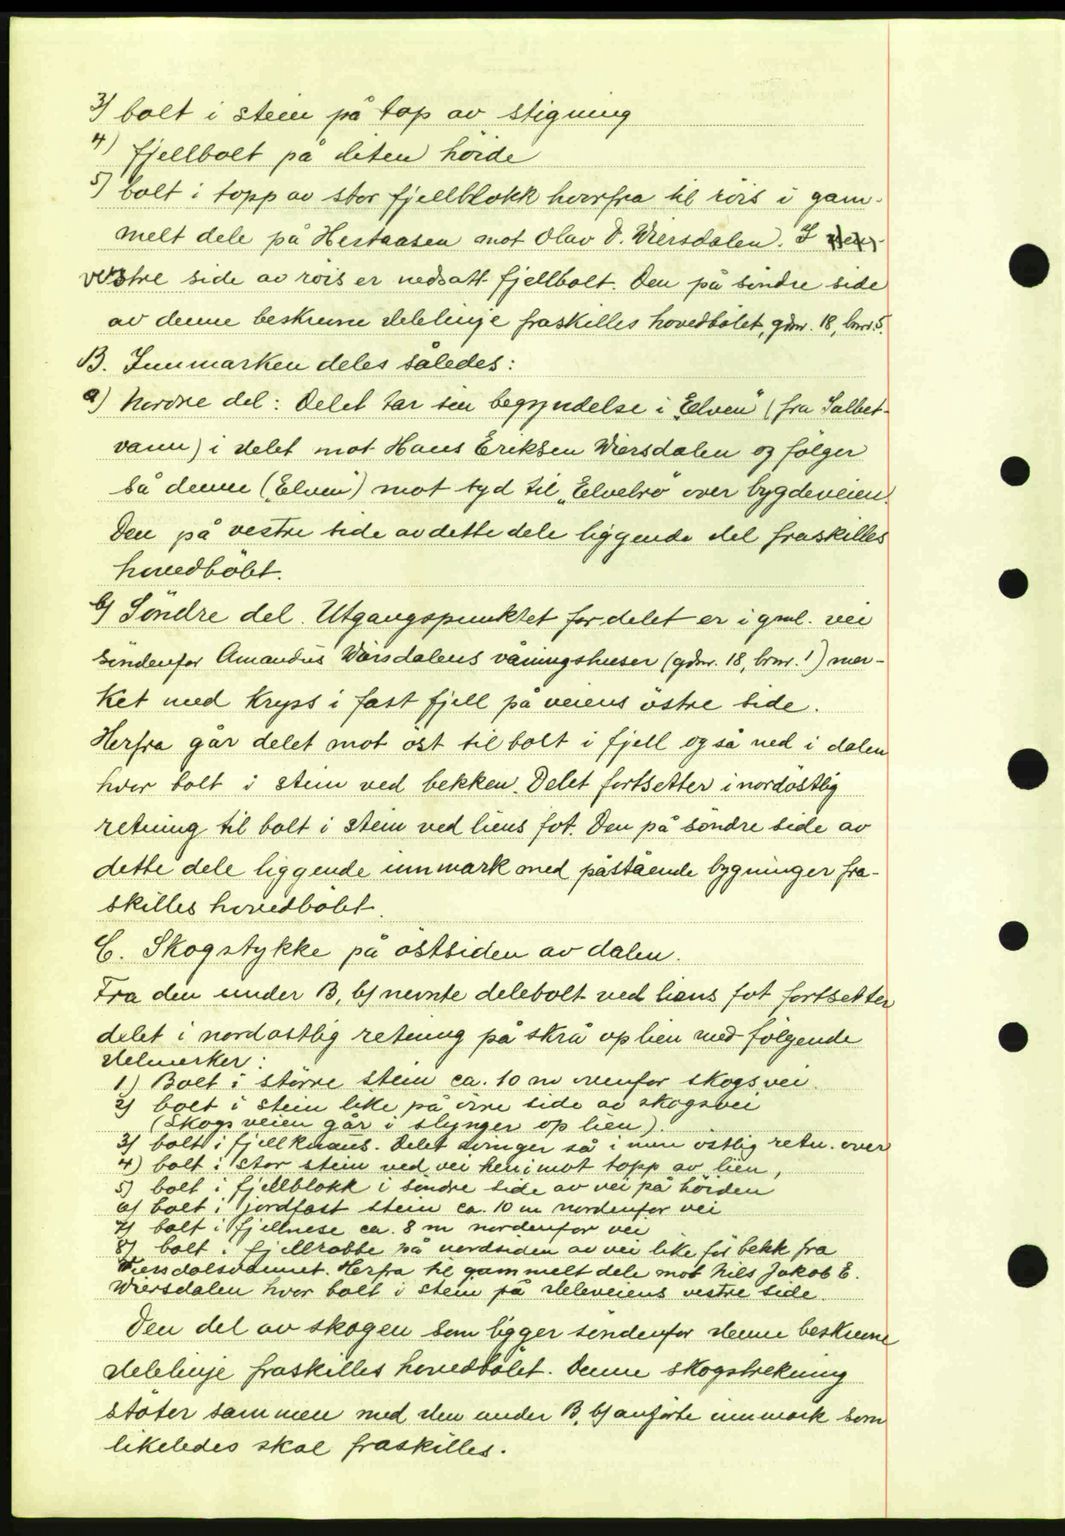 3) bolt i stein på top av stigning
4) fjellbolt på liten höide
5) bolt i topp av stor fjellblokk hvorfra til röis i gam-
melt dele på Hestaasen mot Olav D. Wiersdalen. I
vestre side av röis er nedsatt fjellbolt. Den på söndre side
av denne beskrevne delelinje fraskilles hovedbölet, gdnr. 18, brnr. 5.
B. Innmarken deles således:
a) Nordre del: Delet tar sin begyndelse i "Elven" (fra Salbet-
vann) i delet mot Hans Eriksen Wiersdalen og fölger
så denne ("Elven") mot syd til "Elvebro" over bygdeveien.
Den på vestre side av dette dele liggende del fraskilles
hovedbölet.
b) Söndre del. Utgangspunktet for delet er i gml. vei
söndenfor Amandus Wiersdalens våningshuser (gdnr. 18, brnr. 1) mer-
ket med kryss i fast fjell på veiens östre side.
Herfra går delet mot öst til bolt i fjell og så ned i dalen
hvor bolt i stein ved bekken. Delet fortsetter i nordöstlig
retning til bolt i stein ved liens fot. Den på söndre side av
dette dele liggende innmark med påstående bygninger fra-
skilles hovedbölet.
C. Skogstykke på östsiden av dalen.
Fra den under B, b) nevnte delebolt ved liens fot fortsetter
delet i nordostlig retning på skrå op lien med fölgende
delmerker:
1) Bolt i större stein ca. 10 m ovenfor skogsvei.
2) bolt i stein like på övre side av skogsvei
(Skogsveien går i slynger op lien).
3) bolt i fjellknaus. Delet svinger så i mer östlig retn. over
4) bolt i stor stein ved vei henimot topp av lien,
5) bolt i fjellblokk i söndre side av vei på höiden
6) bolt i jordfast stein ca. 10 m nordenfor vei
7) bolt i fjellnese ca. 8 m nordenfor vei
8) bolt i fjellrabbe på nordsiden av vei like för bekk fra
Wiersdalsvannet. Herfra til gammelt dele mot Nils Jakob E.
Wiersdalen hvor bolt i stein på deleveiens vestre side.
Den del av skogen som ligger söndenfor denne beskrevne
delelinje fraskilles hovedbölet. Denne skogstrekning
stöter sammen med den under B, b) anförte innmark som
likeledes skal fraskilles.